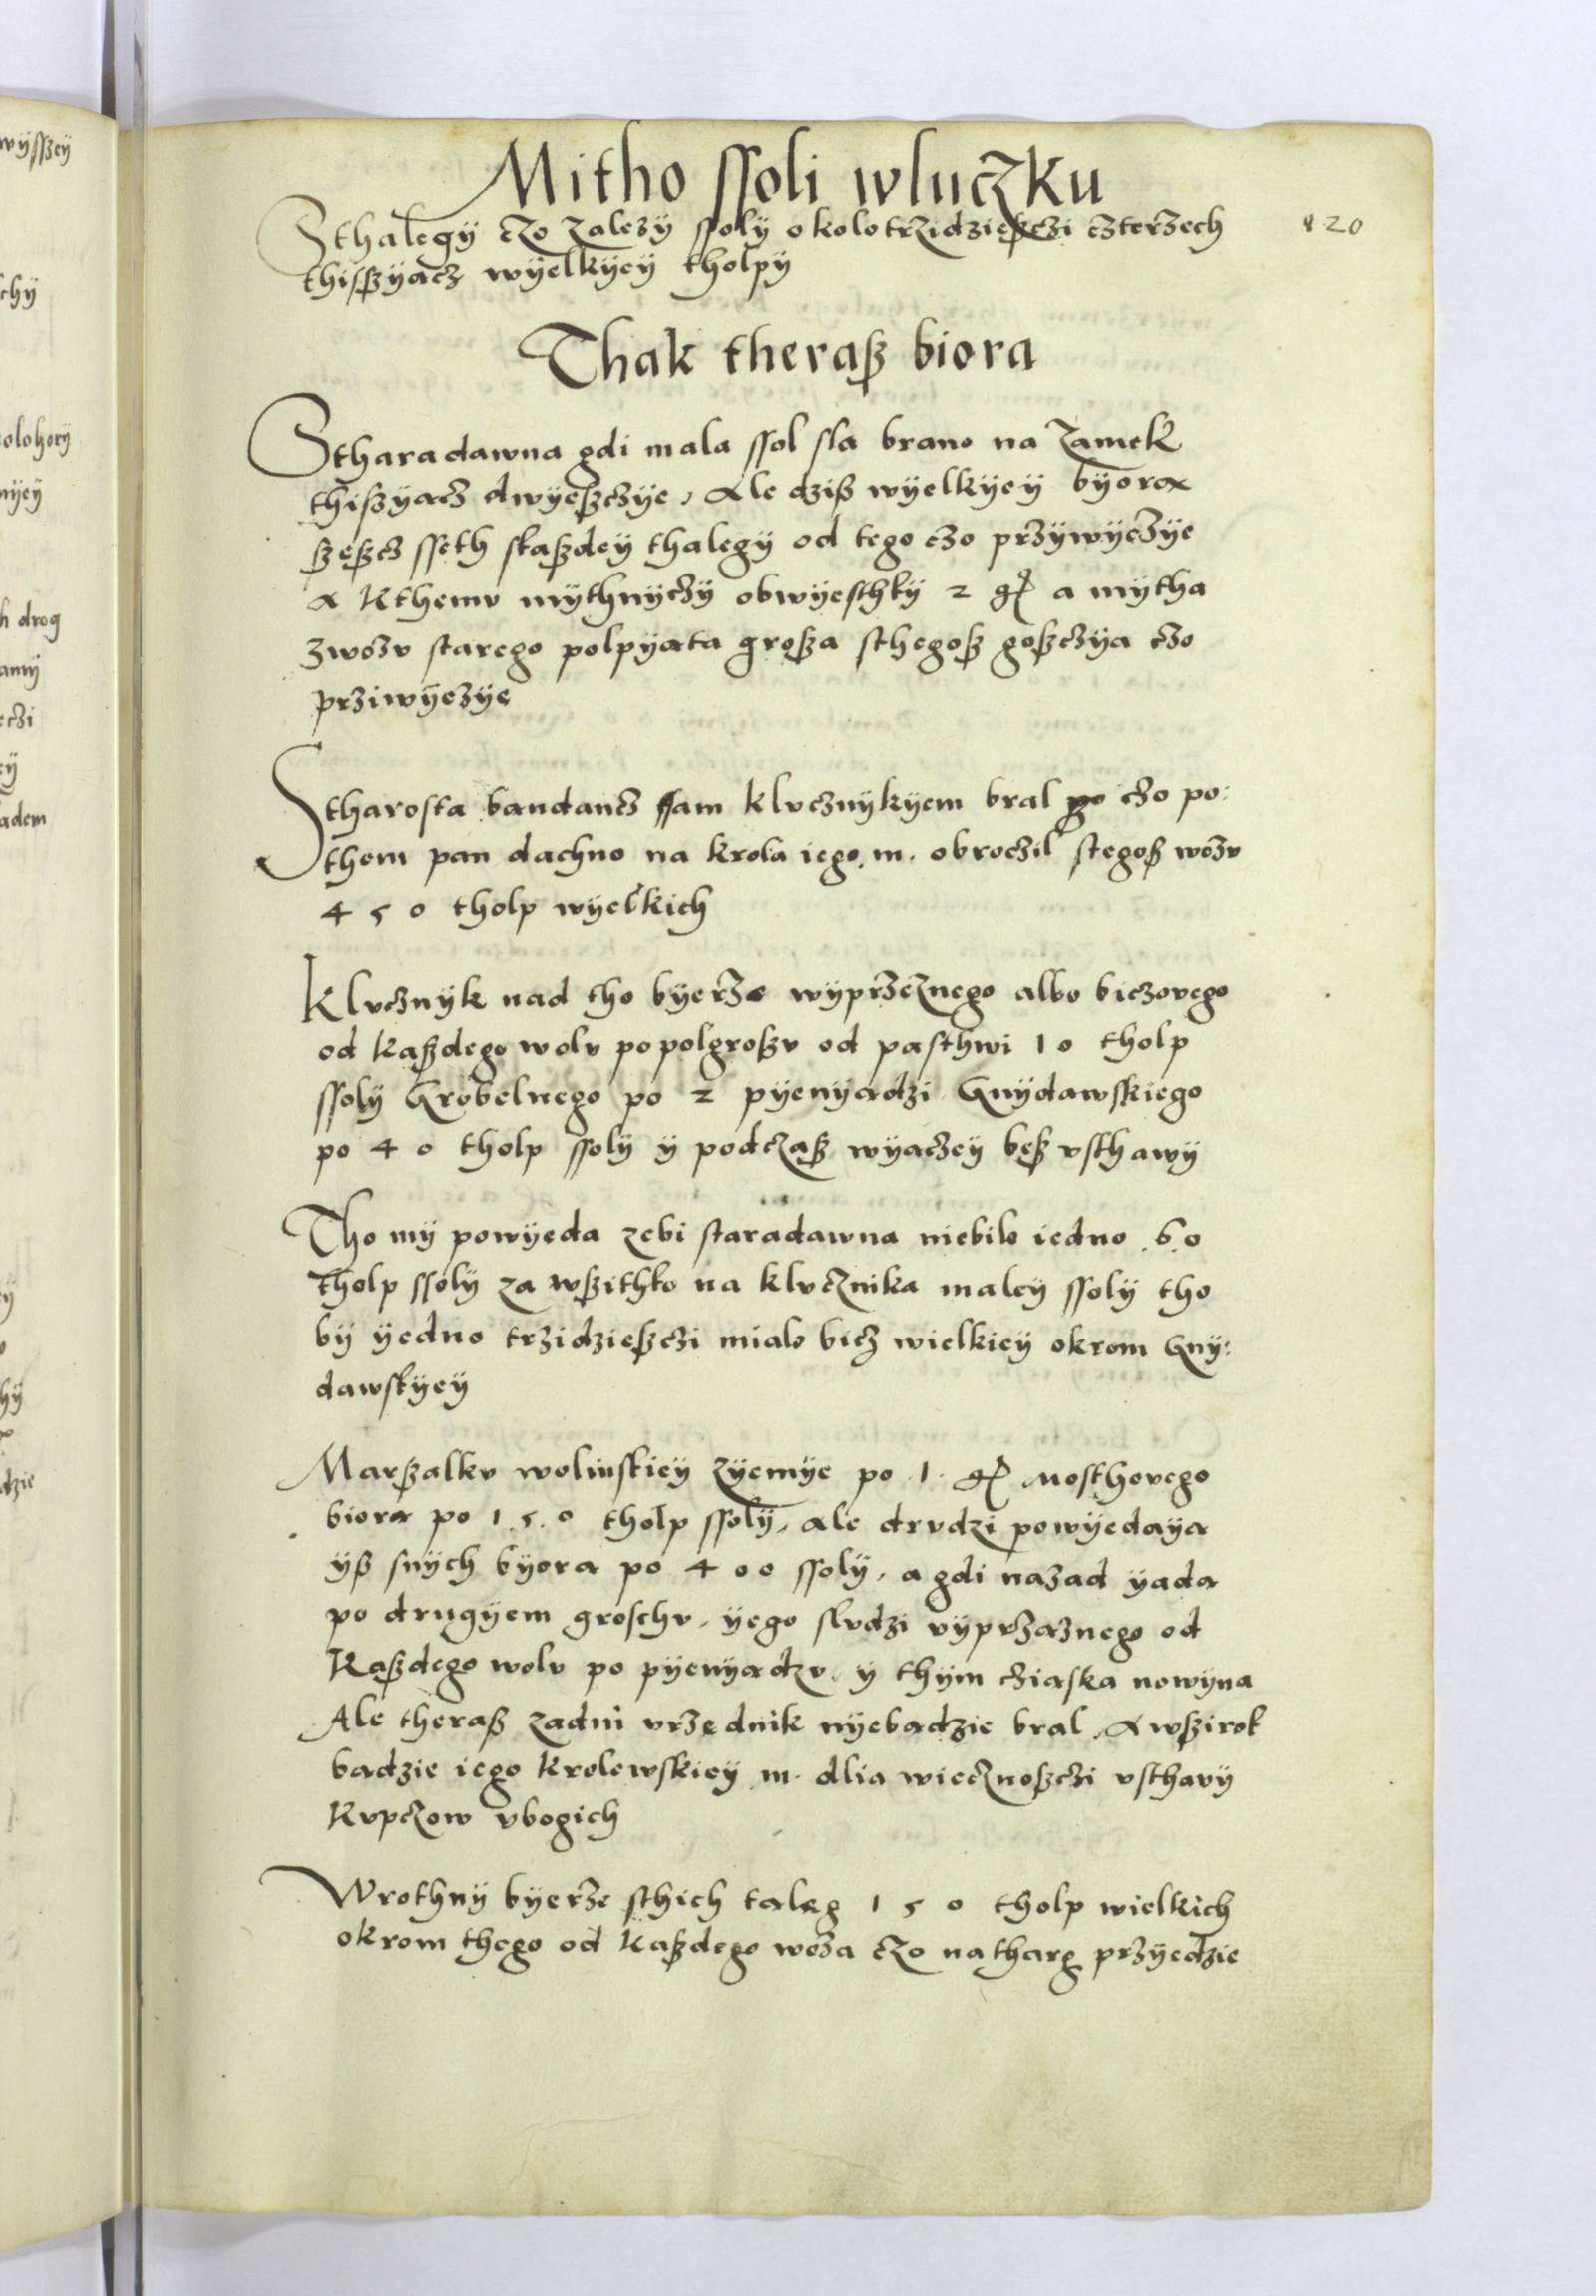 Mitho ssoli wluczku
Sthalegy czo zalezy ssoly okolo trzidzieszczi czterzech
120
thisszyacz wyelkyey tholpy
Thak therasz biora
Stharadawna gdi mala ssol sla brano na zamek
thiszyacz dwyeszczye, Ale dzisz wyelkyey byora
szeszcz sseth skaszdey thalegy od tego czo przywyezye
a kthemu mythnyczy obwyesthky 2 gr a mytha
zwozu starego polpyata grosza sthegosz goszczya czo
prziwyezye
Stharosta bandancz ssam klucznykyem bral czo po:
them pan dachno na krola iego. m. obroczil stegosz wozu
450 tholp wyelkich
Klucznyk nad tho byerze wyprzeznego albo biczovego
od kaszdego wolu po polgroszu od pasthwi 10 tholp
ssoly Grobelnego po 2 pyenyadzi Gnydawskiego
po 40 tholp ssoly y podczasz wyaczey besz usthawy
Tho my powyeda zebi staradawna niebilo iedno .60
tholp ssoly za wszithko na klucznika maley ssoly tho
by yedno trzidzieszczi mialo bicz wielkiey okrom Gny:
dawskyey
Marszalku wolinskiey zyemye po .1. gr Mosthovego
biora po 1.5.0 tholp ssoly, ale drudzi powyedaya
ysz snych byora po 400 ssoly, a gdi nazad yada
po drugyem groschu, yego sludzi vyprzaznego od
kaszdego wolu po pyenyadzu, y thym cziaska nowyna
Ale therasz zadni urzednik nyebadzie bral, Awszirok
badzie iego krolewskiey .m. dlia wiecznoszczi usthavy
kupczow ubogich
Wrothny byerze sthich taleg 150 tholp wielkich
okrom thego od kaszdego woza czo na tharg przyedzie
wysszey
chy
olohory
nyey
h drog
amy
eczi
ey
adem
hy
dzie